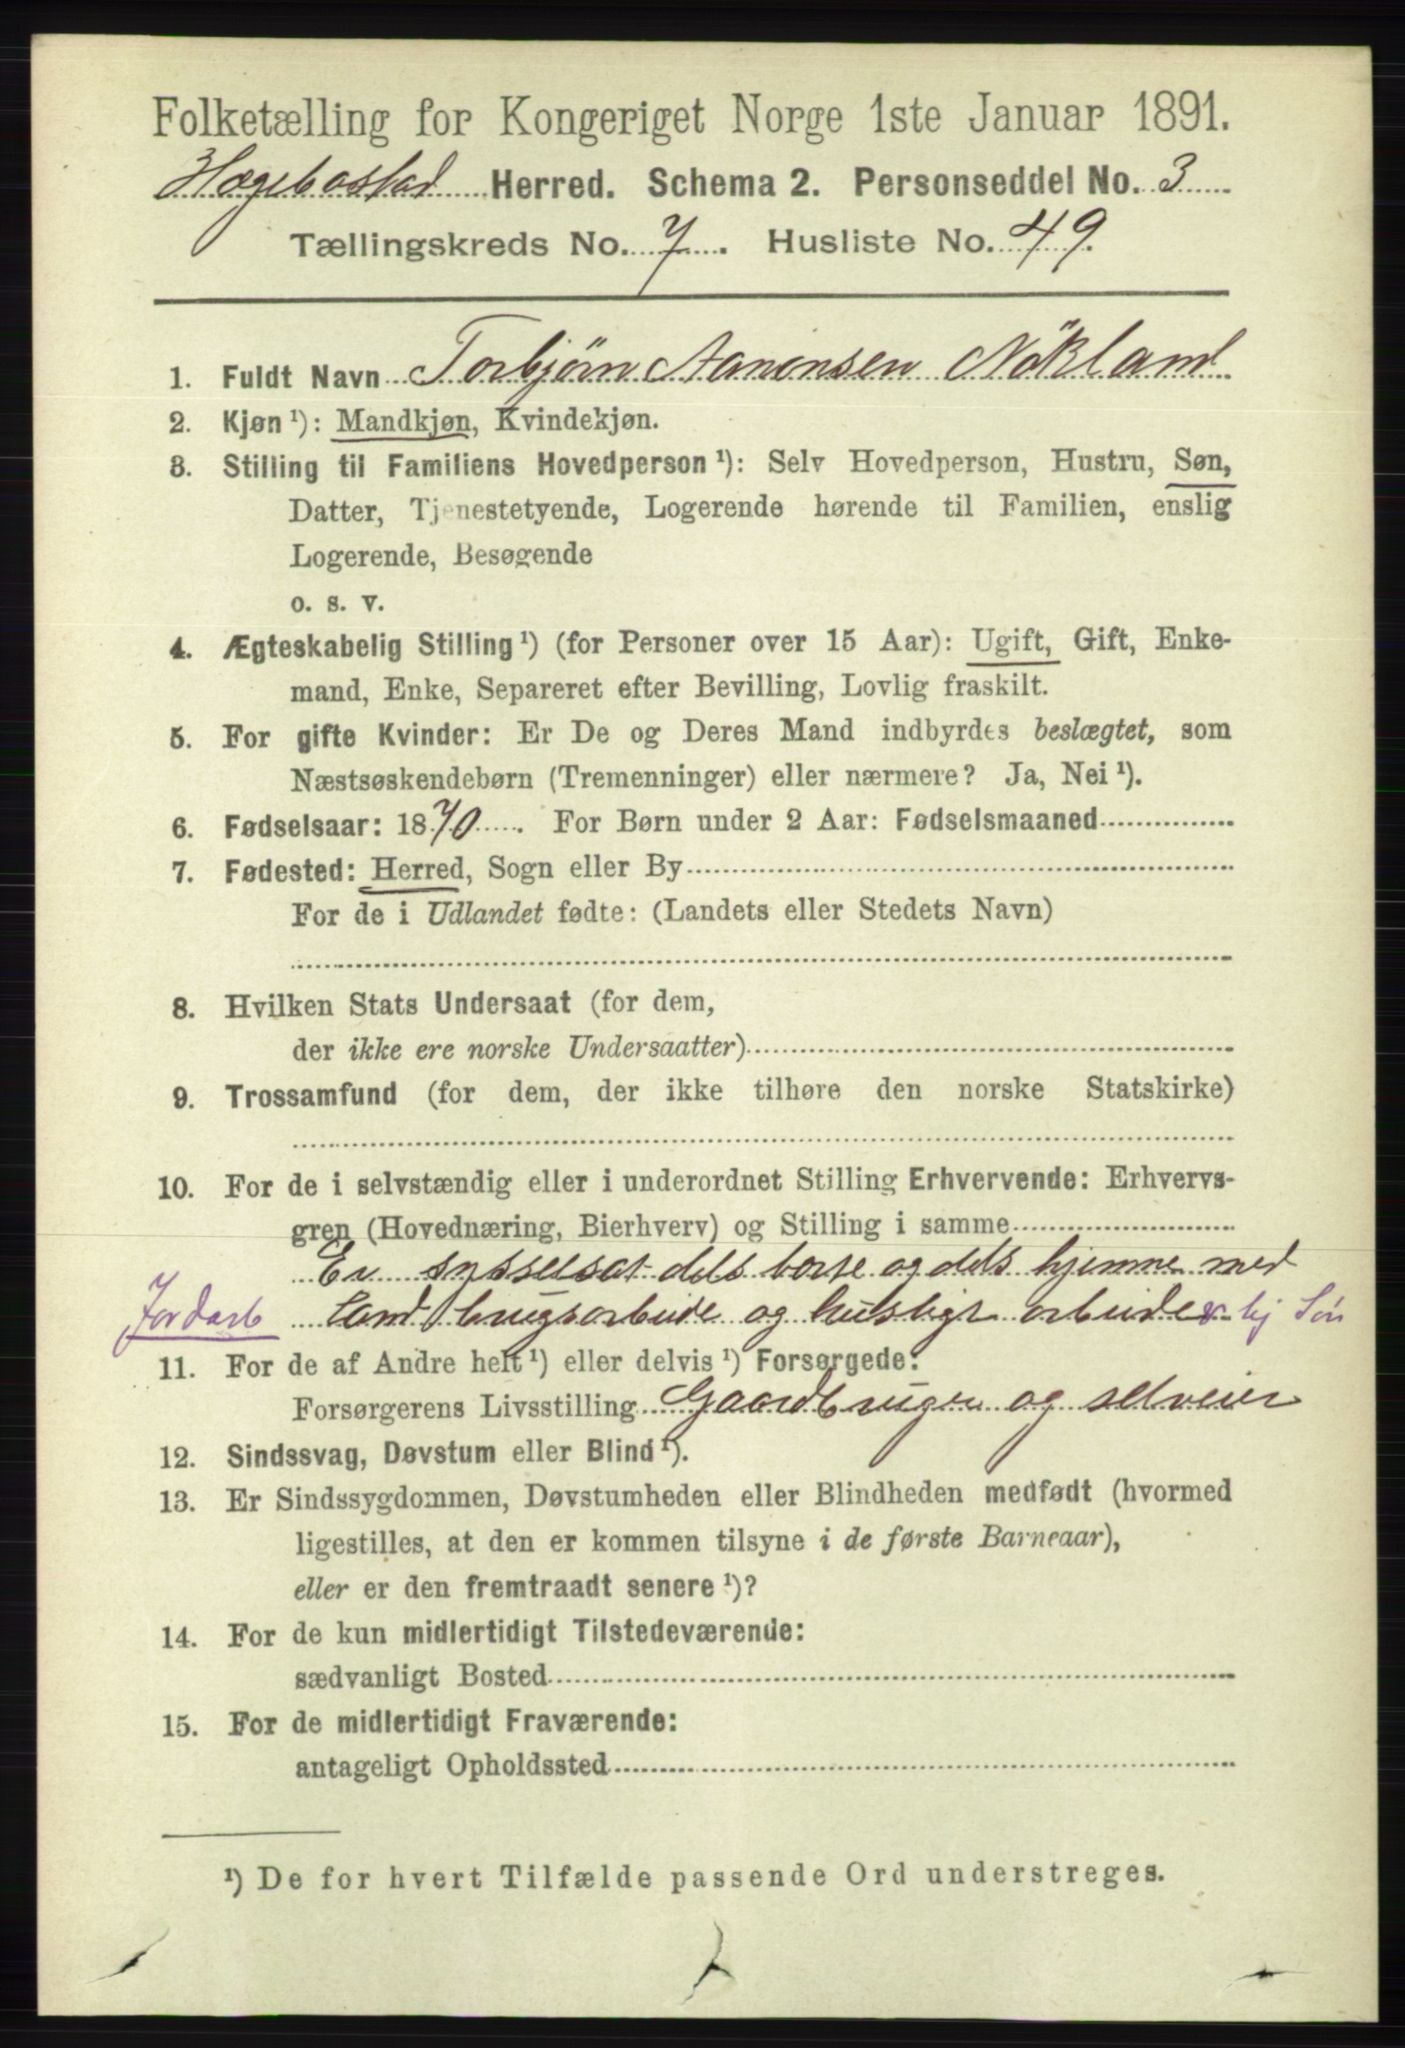 Folketælling for Kongeriget Norge 1ste Januar 1891.
Hægebostad Herred. Schema 2. Personseddel No. 3
Tællingskreds No. 7. Husliste No. 49.
1. Fuldt Navn Torbjørn Aanensen Nökland
2. Kjøn ¹): Mandkjøn, Kvindekjøn.
3. Stilling til Familiens Hovedperson ¹): Selv Hovedperson, Hustru, Søn,
Datter, Tjenestetyende, Logerende hørende til Familien, enslig
Logerende, Besøgende
o. s. v.
4. Ægteskabelig Stilling ¹) (for Personer over 15 Aar): Ugift, Gift, Enke-
mand, Enke, Separeret efter Bevilling, Lovlig fraskilt.
5. For gifte Kvinder: Er De og Deres Mand indbyrdes beslægtet, som
Næstsøskendebørn (Tremenninger) eller nærmere? Ja, Nei ¹).
6. Fødselsaar: 1870. For Børn under 2 Aar: Fødselsmaaned
7. Fødested: Herred, Sogn eller By
For de i Udlandet fødte: (Landets eller Stedets Navn)
8. Hvilken Stats Undersaat (for dem,
der ikke ere norske Undersaatter)
9. Trossamfund (for dem, der ikke tilhøre den norske Statskirke)
10. For de i selvstændig eller i underordnet Stilling Erhvervende: Erhvervs-
gren (Hovednæring, Bierhverv) og Stilling i samme
Er sysselsat dels borte og dels hjemme med
Jordarb land brugsarbeide og husligt arbeide hj Søn
11. For de af Andre helt ¹) eller delvis ¹) Forsørgede:
Forsørgerens Livsstilling Gaardbruger og selveier
12. Sindssvag, Døvstum eller Blind ¹).
13. Er Sindssygdommen, Døvstumheden eller Blindheden medfødt (hvormed
ligestilles, at den er kommen tilsyne i de første Barneaar),
eller er den fremtraadt senere ¹)?
14. For de kun midlertidigt Tilstedeværende:
sædvanligt Bosted
15. For de midlertidigt Fraværende:
antageligt Opholdssted
¹) De for hvert Tilfælde passende Ord understreges.